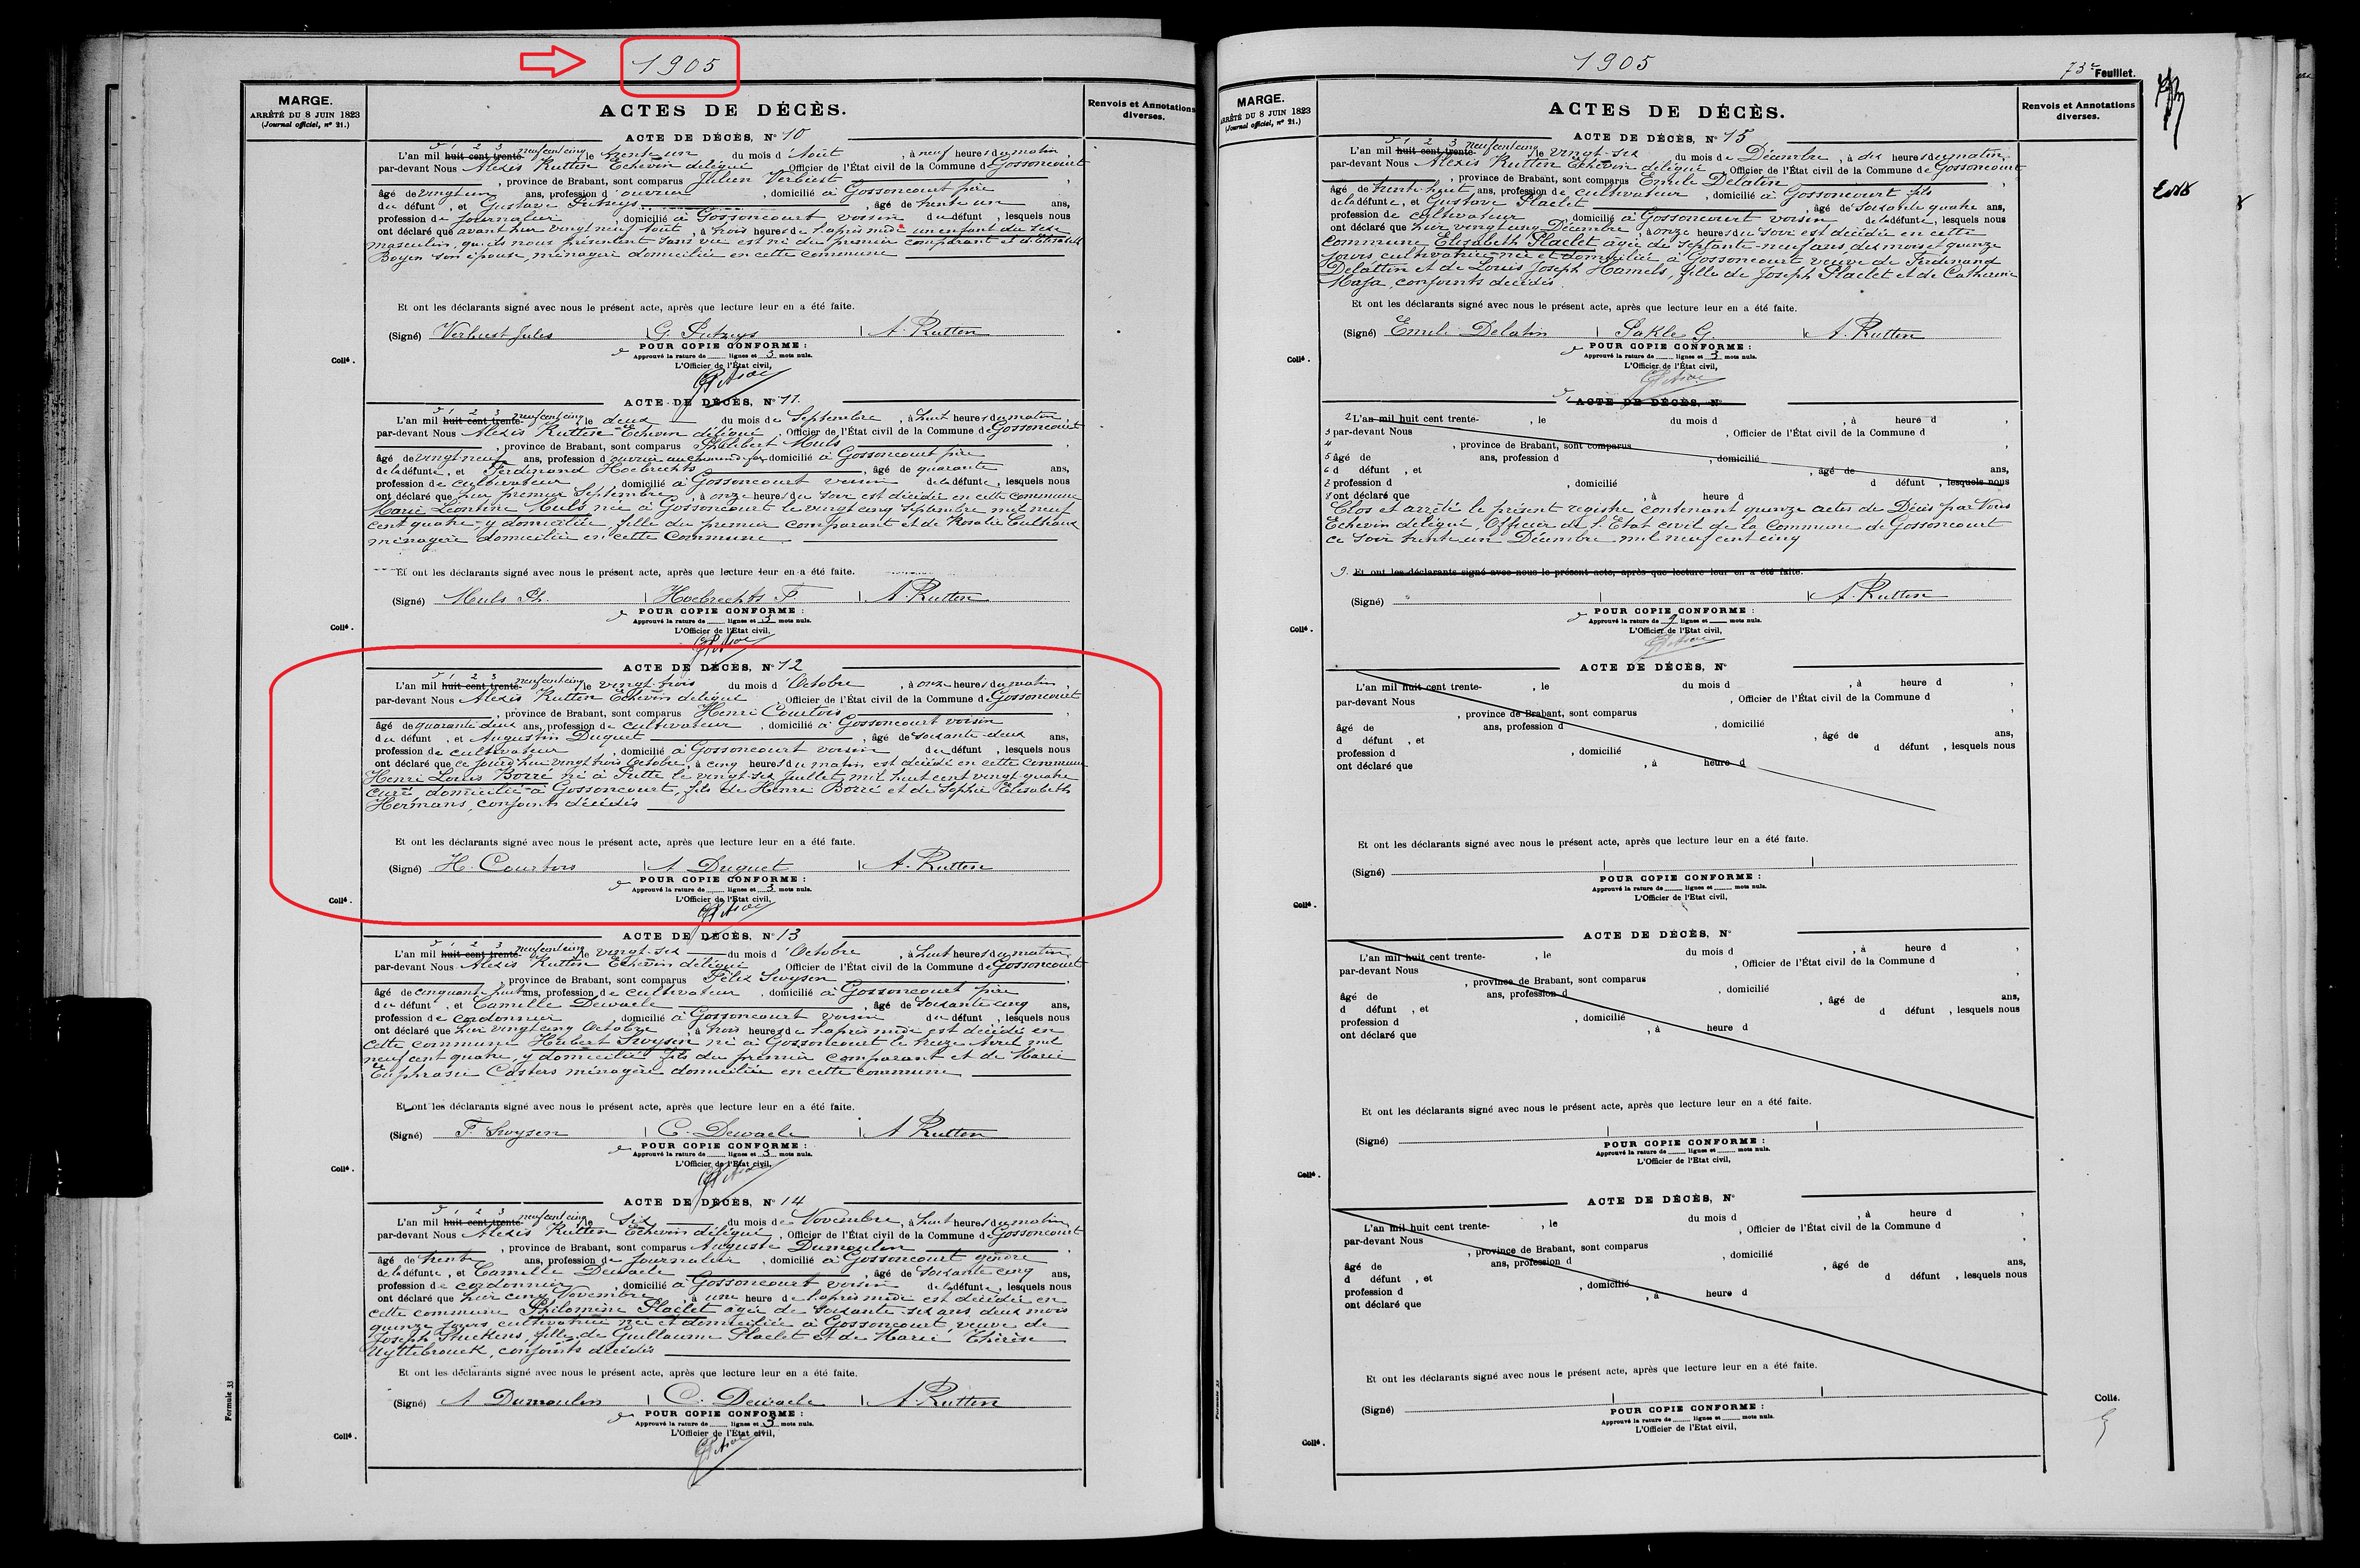 1905
MARGE.
ARRÊTÉ DU 8 JUIN 1823
(Journal officiel, nº 21.)
ACTES DE DÉCÈS.
Renvois et Annotations
diverses.
ACTE DE DÉCÈS, Nº 10
L'an mil huit cent trente neufcentcinq, le trent-un du mois d'Août, à neuf heures du matin
par-devant Nous Alexis Rutten Echevin délégué, Officier de l'État civil de la Commune de Gossoncourt
, province de Brabant, sont comparus Julien Verbiest,
âgé de vingt un ans, profession d'ouvrier, domicilié à Gossoncourt père
du défunt, et Gustave Putzeys, âgé de trente un ans,
profession de journalier, domicilié à Gossoncourt voisin du défunt, lesquels nous
ont déclaré que avant hier vingt neuf Août, à trois heures de l'après midi un enfant du sexe
masculin, qu'ils nous présentent sans vie est né du premier comparant et d'Elisabeth
Boyen son épouse, ménagère domiciliée en cette commune
Et ont les déclarants signé avec nous le présent acte, après que lecture leur en a été faite.
(Signé) Verbiest Jules G. Putzeys A. Rutten
POUR COPIE CONFORME :
Approuvé la rature de lignes et 3 mots nuls.
L'Officier de l'État civil,
Collé.
ACTE DE DÉCÈS, Nº 11.
L'an mil huit cent trente neufcentcinq, le deux du mois de Septembre, à huit heures du matin,
par-devant Nous Alexis Rutten Echevin délégué, Officier de l'État civil de la Commune de Gossoncourt
, province de Brabant, sont comparus Philibert Muls,
âgé de vingt neuf ans, profession d'ouvrier au chemin de fer, domicilié à Gossoncourt père
de la défunte, et Ferdinand Hoebrechts, âgé de quarante ans,
profession de cultivateur, domicilié à Gossoncourt voisin de la défunte, lesquels nous
ont déclaré que hier premier Septembre, à onze heures du soir est décédée en cette commune
Marie Léontine Muls née à Gossoncourt le vingt cinq Septembre mil neuf
cent quatre y domiciliée, fille du premier comparant et de Rosalie
ménagère domiciliée en cette commune.
Et ont les déclarants signé avec nous le présent acte, après que lecture leur en a été faite.
(Signé) Muls Ph. Hoebrechts F A. Rutten
POUR COPIE CONFORME :
Approuvé la rature de lignes et 3 mots nuls.
L'Officier de l'État civil,
Collé.
ACTE DE DÉCÈS, Nº 12
L'an mil huit cent trente neufcentcinq, le vingt-trois du mois d'Octobre, à onze heures du matin,
par-devant Nous Alexis Rutten Echevin délégué, Officier de l'État civil de la Commune de Gossoncourt
, province de Brabant, sont comparus Henri Courtois,
âgé de quarante deux ans, profession de cultivateur, domicilié à Gossoncourt voisin
du défunt, et Augustin Duquet, âgé de soixante-deux ans,
profession de cultivateur, domicilié à Gossoncourt voisin du défunt, lesquels nous
ont déclaré que ce jourd'hui vingt trois Octobre, à cinq heures du matin est décédé en cette commune
Henri Louis Borré né à Putte le vingt-six Juillet mil huit cent vingt quatre
curé domicilié à Gossoncourt, fils de Henri Borré et de Sophie Elisabeth
Hermans, conjoints décédés
Et ont les déclarants signé avec nous le présent acte, après que lecture leur en a été faite.
(Signé) H. Courtois A Duquet A. Rutten
POUR COPIE CONFORME :
Approuvé la rature de lignes et 3 mots nuls.
L'Officier de l'État civil,
Collé.
ACTE DE DÉCÈS, Nº 13
L'an mil huit cent trente neufcentcinq, le vingt-six du mois d'Octobre, à huit heures du matin,
par-devant Nous Alexis Rutten Echevin délégué, Officier de l'État civil de la Commune de Gossoncourt
, province de Brabant, sont comparus Félix Swysen,
âgé de cinquante huit ans, profession de cultivateur, domicilié à Gossoncourt père
du défunt, et Camille Dewaele, âgé de soixante cinq ans,
profession de cordonnier, domicilié à Gossoncourt voisin du défunt, lesquels nous
ont déclaré que hier vingt cinq Octobre, à trois heures de l'après midi est décédé en
cette commune Hubert Swysen né à Gossoncourt le treize Avril mil
neuf cent quatre, y domicilié fils du premier comparant et de Marie
Euphrasie Casters ménagère domiciliée en cette commune
Et ont les déclarants signé avec nous le présent acte, après que lecture leur en a été faite.
(Signé) F. Swysen C. Dewaele A Rutten
POUR COPIE CONFORME :
Approuvé la rature de lignes et 3 mots nuls.
L'Officier de l'État civil,
Collé.
ACTE DE DÉCÈS, Nº 14
L'an mil huit cent trente neufcentcinq, le six du mois de Novembre, à huit heures du matin,
par-devant Nous Alexis Rutten Echevin délégué, Officier de l'État civil de la Commune de Gossoncourt
, province de Brabant, sont comparus Auguste Dumoulin,
âgé de trente ans, profession de journalier, domicilié à Gossoncourt gendre
de la défunte, et Camille Dewaele, âgé de soixante cinq ans,
profession de cordonnier, domicilié à Gossoncourt voisin de la défunte, lesquels nous
ont déclaré que hier cinq Novembre, à une heure de l'après midi est décédée en
cette commune Philomène Placlet âgée de soixante-six ans deux mois
quinze jours, cultivatrice née et domiciliée à Gossoncourt, veuve de
Joseph Stuckens, fille de Guillaume Placlet et de Marie Thérèse
Uyttebrouck, conjoints décédés
Et ont les déclarants signé avec nous le présent acte, après que lecture leur en a été faite.
(Signé) A Dumoulin C. Dewaele A. Rutten
POUR COPIE CONFORME :
Approuvé la rature de lignes et 3 mots nuls.
L'Officier de l'État civil,
Collé.
Formule 33
1905
73e Feuillet.
MARGE.
ARRÊTÉ DU 8 JUIN 1823
(Journal officiel, nº 21.)
ACTES DE DÉCÈS.
Renvois et Annotations
diverses.
ACTE DE DÉCÈS, Nº 15
L'an mil huit cent trente neufcentcinq, le vingt-six du mois de Décembre, à dix heures du matin,
par-devant Nous Alexis Rutten Echevin délégué, Officier de l'État civil de la Commune de Gossoncourt
, province de Brabant, sont comparus Emile Delatin,
âgé de trente-huit ans, profession de cultivateur, domicilié à Gossoncourt fils
de la défunte, et Gustave Placlet, âgé de soixante quatre ans,
profession de cultivateur, domicilié à Gossoncourt voisin de la défunte, lesquels nous
ont déclaré que hier vingt cinq Décembre, à onze heures du soir est décédée en cette
commune Elisabeth Placlet âgée de septante-neuf ans dix mois et quinze
jours cultivatrice née et domiciliée à Gossoncourt veuve de Ferdinand
Delattin et de Louis Joseph Hamels, fille de Joseph Placlet et de Catherine
conjoints décédés.
Et ont les déclarants signé avec nous le présent acte, après que lecture leur en a été faite.
(Signé) Emile Delatin Pakle G. A. Rutten
POUR COPIE CONFORME :
Approuvé la rature de lignes et 3 mots nuls.
L'Officier de l'État civil,
Collé.
ACTE DE DÉCÈS, Nº
2 L'an mil huit cent trente- , le du mois d , à heure d ,
3 par-devant Nous , Officier de l'État civil de la Commune d
4 , province de Brabant, sont comparus ,
5 âgé de ans, profession d , domicilié
6 d défunt , et , âgé de ans,
7 profession d , domicilié d défunt , lesquels nous
8 ont déclaré que , à heure d
Clos et arrêté le présent registre contenant quinze actes de Décès par Nous
Echevin délégué, Officier de l'Etat civil de la Commune de Gossoncourt
ce soir trente-un Décembre mil neuf cent cinq
9. Et ont les déclarants signé avec nous le présent acte, après que lecture leur en a été faite.
(Signé) A. Rutten
POUR COPIE CONFORME :
Approuvé la rature de 9 lignes et mots nuls.
L'Officier de l'État civil,
Collé.
ACTE DE DÉCÈS, Nº
L'an mil huit cent trente- , le du mois d , à heure d ,
par-devant Nous , Officier de l'État civil de la Commune d
, province de Brabant, sont comparus ,
âgé de ans, profession d , domicilié
d défunt , et , âgé de ans,
profession d , domicilié d défunt , lesquels nous
ont déclaré que , à heure d
Et ont les déclarants signé avec nous le présent acte, après que lecture leur en a été faite.
(Signé)
POUR COPIE CONFORME :
Approuvé la rature de lignes et mots nuls.
L'Officier de l'État civil,
Collé.
ACTE DE DÉCÈS, Nº
L'an mil huit cent trente- , le du mois d , à heure d ,
par-devant Nous , Officier de l'État civil de la Commune d
, province de Brabant, sont comparus ,
âgé de ans, profession d , domicilié
d défunt , et , âgé de ans,
profession d , domicilié d défunt , lesquels nous
ont déclaré que , à heure d
Et ont les déclarants signé avec nous le présent acte, après que lecture leur en a été faite.
(Signé)
POUR COPIE CONFORME :
Approuvé la rature de lignes et mots nuls.
L'Officier de l'État civil,
Collé.
ACTE DE DÉCÈS, Nº
L'an mil huit cent trente- , le du mois d , à heure d ,
par-devant Nous , Officier de l'État civil de la Commune d
, province de Brabant, sont comparus , domicilié
âgé de ans, profession d , âgé de ans,
d défunt , et d défunt , lesquels nous
profession d , domicilié
ont déclaré que , à heure d
Et ont les déclarants signé avec nous le présent acte, après que lecture leur en a été faite.
(Signé)
POUR COPIE CONFORME :
Approuvé la rature de lignes et mots nuls.
L'Officier de l'État civil,
Collé.
Collé.